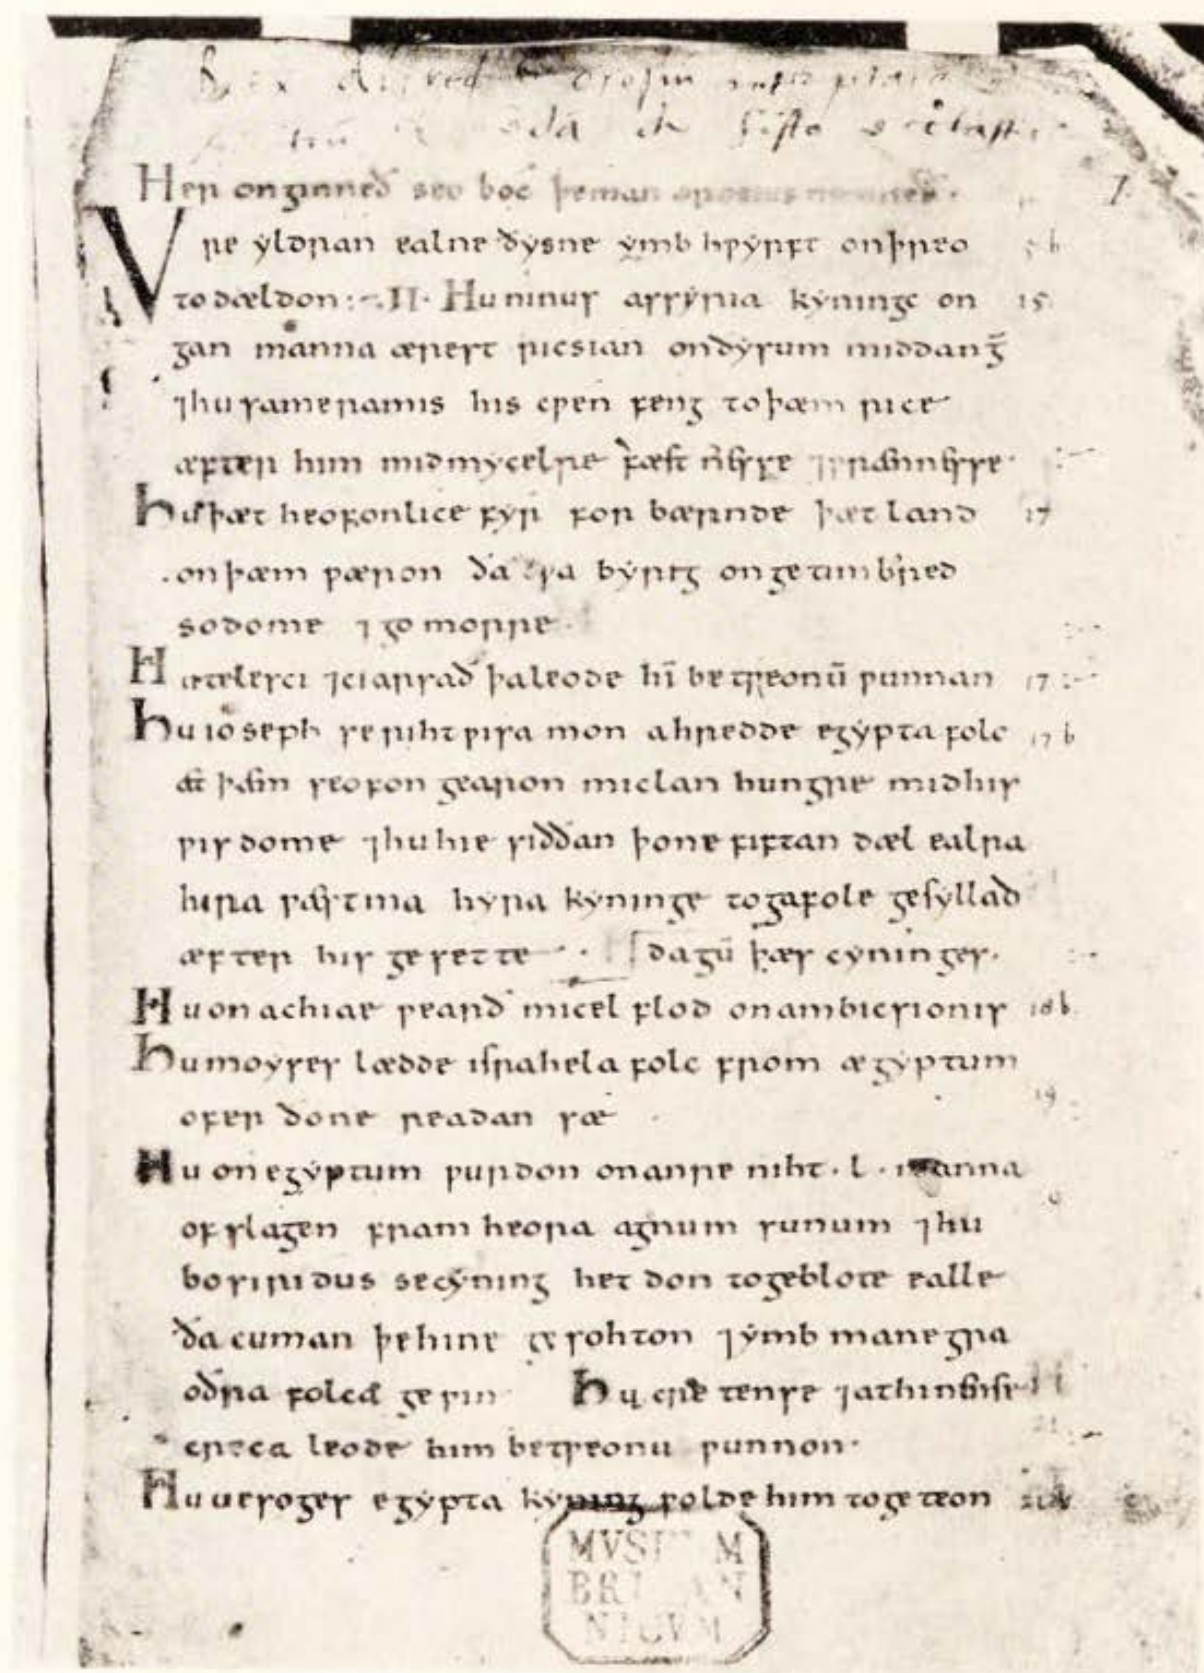 Her onginneð seo boc þeman orosius nemneð·
Vre yldran ealne ðysne ymb hwyrft onþreo
todældon:~ II· Hu ninus assyria kyninge on
gan manna ærest ricsian onðysum middang̅
⁊hu sameramis his cwen feng toþæm rice
æfter him midmycelre
Huþæt heofonlice fyr for bærnde þæt land 17
·onþæm wæron ða twa byrig ongetimbred
sodome ⁊ go morre·
Hu telesci ⁊ciarsað þaleode hi̅ be tweonu̅ wunnan 17
Hu ioseph se rihtwisa mon ahredde egypta folc 17 b
æt þæm seofon gearon miclan hungre midhis
wisdome ⁊hu hie siððan þone fiftan dæl ealra
hira wæstma hyra kyninge togafole gesyllað
æfter his ge sette dagu̅ þæs cyninges·
Hu on achiae wearð micel flod onambicsionis 18 b
Hu moyses lædde israhela folc from ægyptum
ofer ðone readan sæ 19
Hu on egyptum wurdon onanre niht·l·manna
ofslagen fram heora agnum sunum ⁊hu
bosiridus secyning het don togeblote ealle
ða cuman þehine ge sohton ⁊ymb manegra
oðra folca ge win Hu cre tense ⁊athiniense
creca leode him betweonu wunnon·
Hu uesoges egypta kyning wolde him togeteon
MVSEVM
BRITAN
NICVM